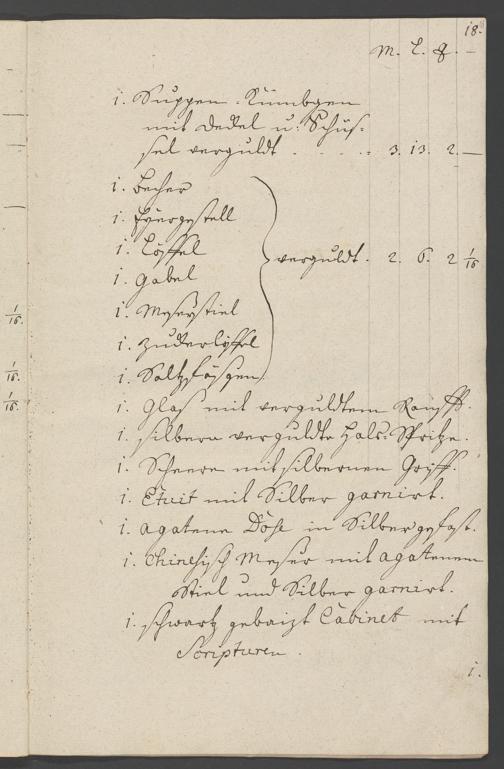 18.
M. L. q. —
1. Suppen-Kümbgen
mit Deckel u: Schüs-
sel verguldt . . . . 3. 13. 2. —
1. Becher
1. Eyergestell
1. Löffel
verguldt. 2. 6. 2 1/16
1. Gabel
1. Messerstiel
1/16.
1. Zuckerlöffel
1/16.
1. Saltzfässgen
1/16.
1. Glas mit verguldtem
1. silbern verguldte Hals-Spritze.
1. Scheere mit silbernen Griff.
1. Etuit mit Silber garnirt.
1. agatene Dose in Silber gefast.
1. Chinesisch Messer mit agatenem
Stiel und Silber garnirt.
1. schwartz gebaizt Cabinet mit
Scripturen.
1.